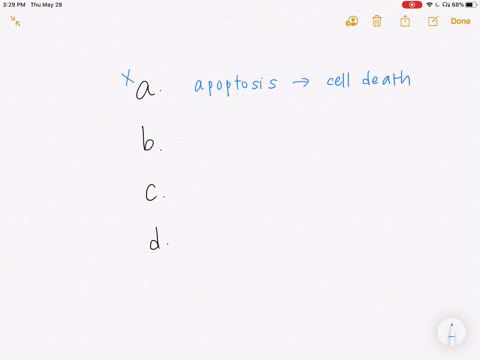 3:29 PM Thu May 28
68%
Done
x a. apoptosis → cell death
b.
c.
d.